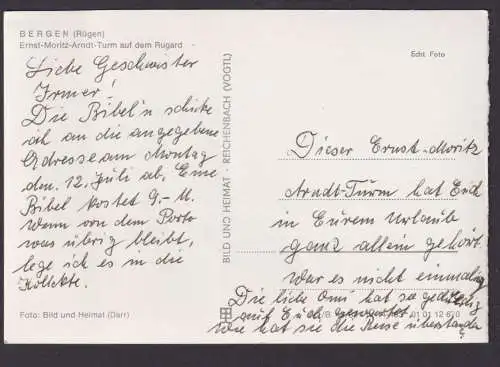 BERGEN (Rügen)
Ernst-Moritz-Arndt-Turm auf dem Rugard
Liebe Geschwister
Irmer!
Die Bibel'n schicke
ich an die angegebene
Adresse am Montag
den 12. Juli ab, Eine
Bibel kostet 9,- M.
Wenn von dem Porto
was übrig bleibt,
lege ich es in die
Kollekte.
Foto: Bild und Heimat (Darr)
BILD UND HEIMAT · REICHENBACH (VOGTL)
Echt Foto
Dieser Ernst-Moritz
Arndt-Turm hat Euch
in Eurem Urlaub
ganz allein gehört.
War es nicht einmalig
Die liebe Omi hat so geduldig
auf Euch gewartet.
Wie hat sie die Reise überstanden
01 01 12